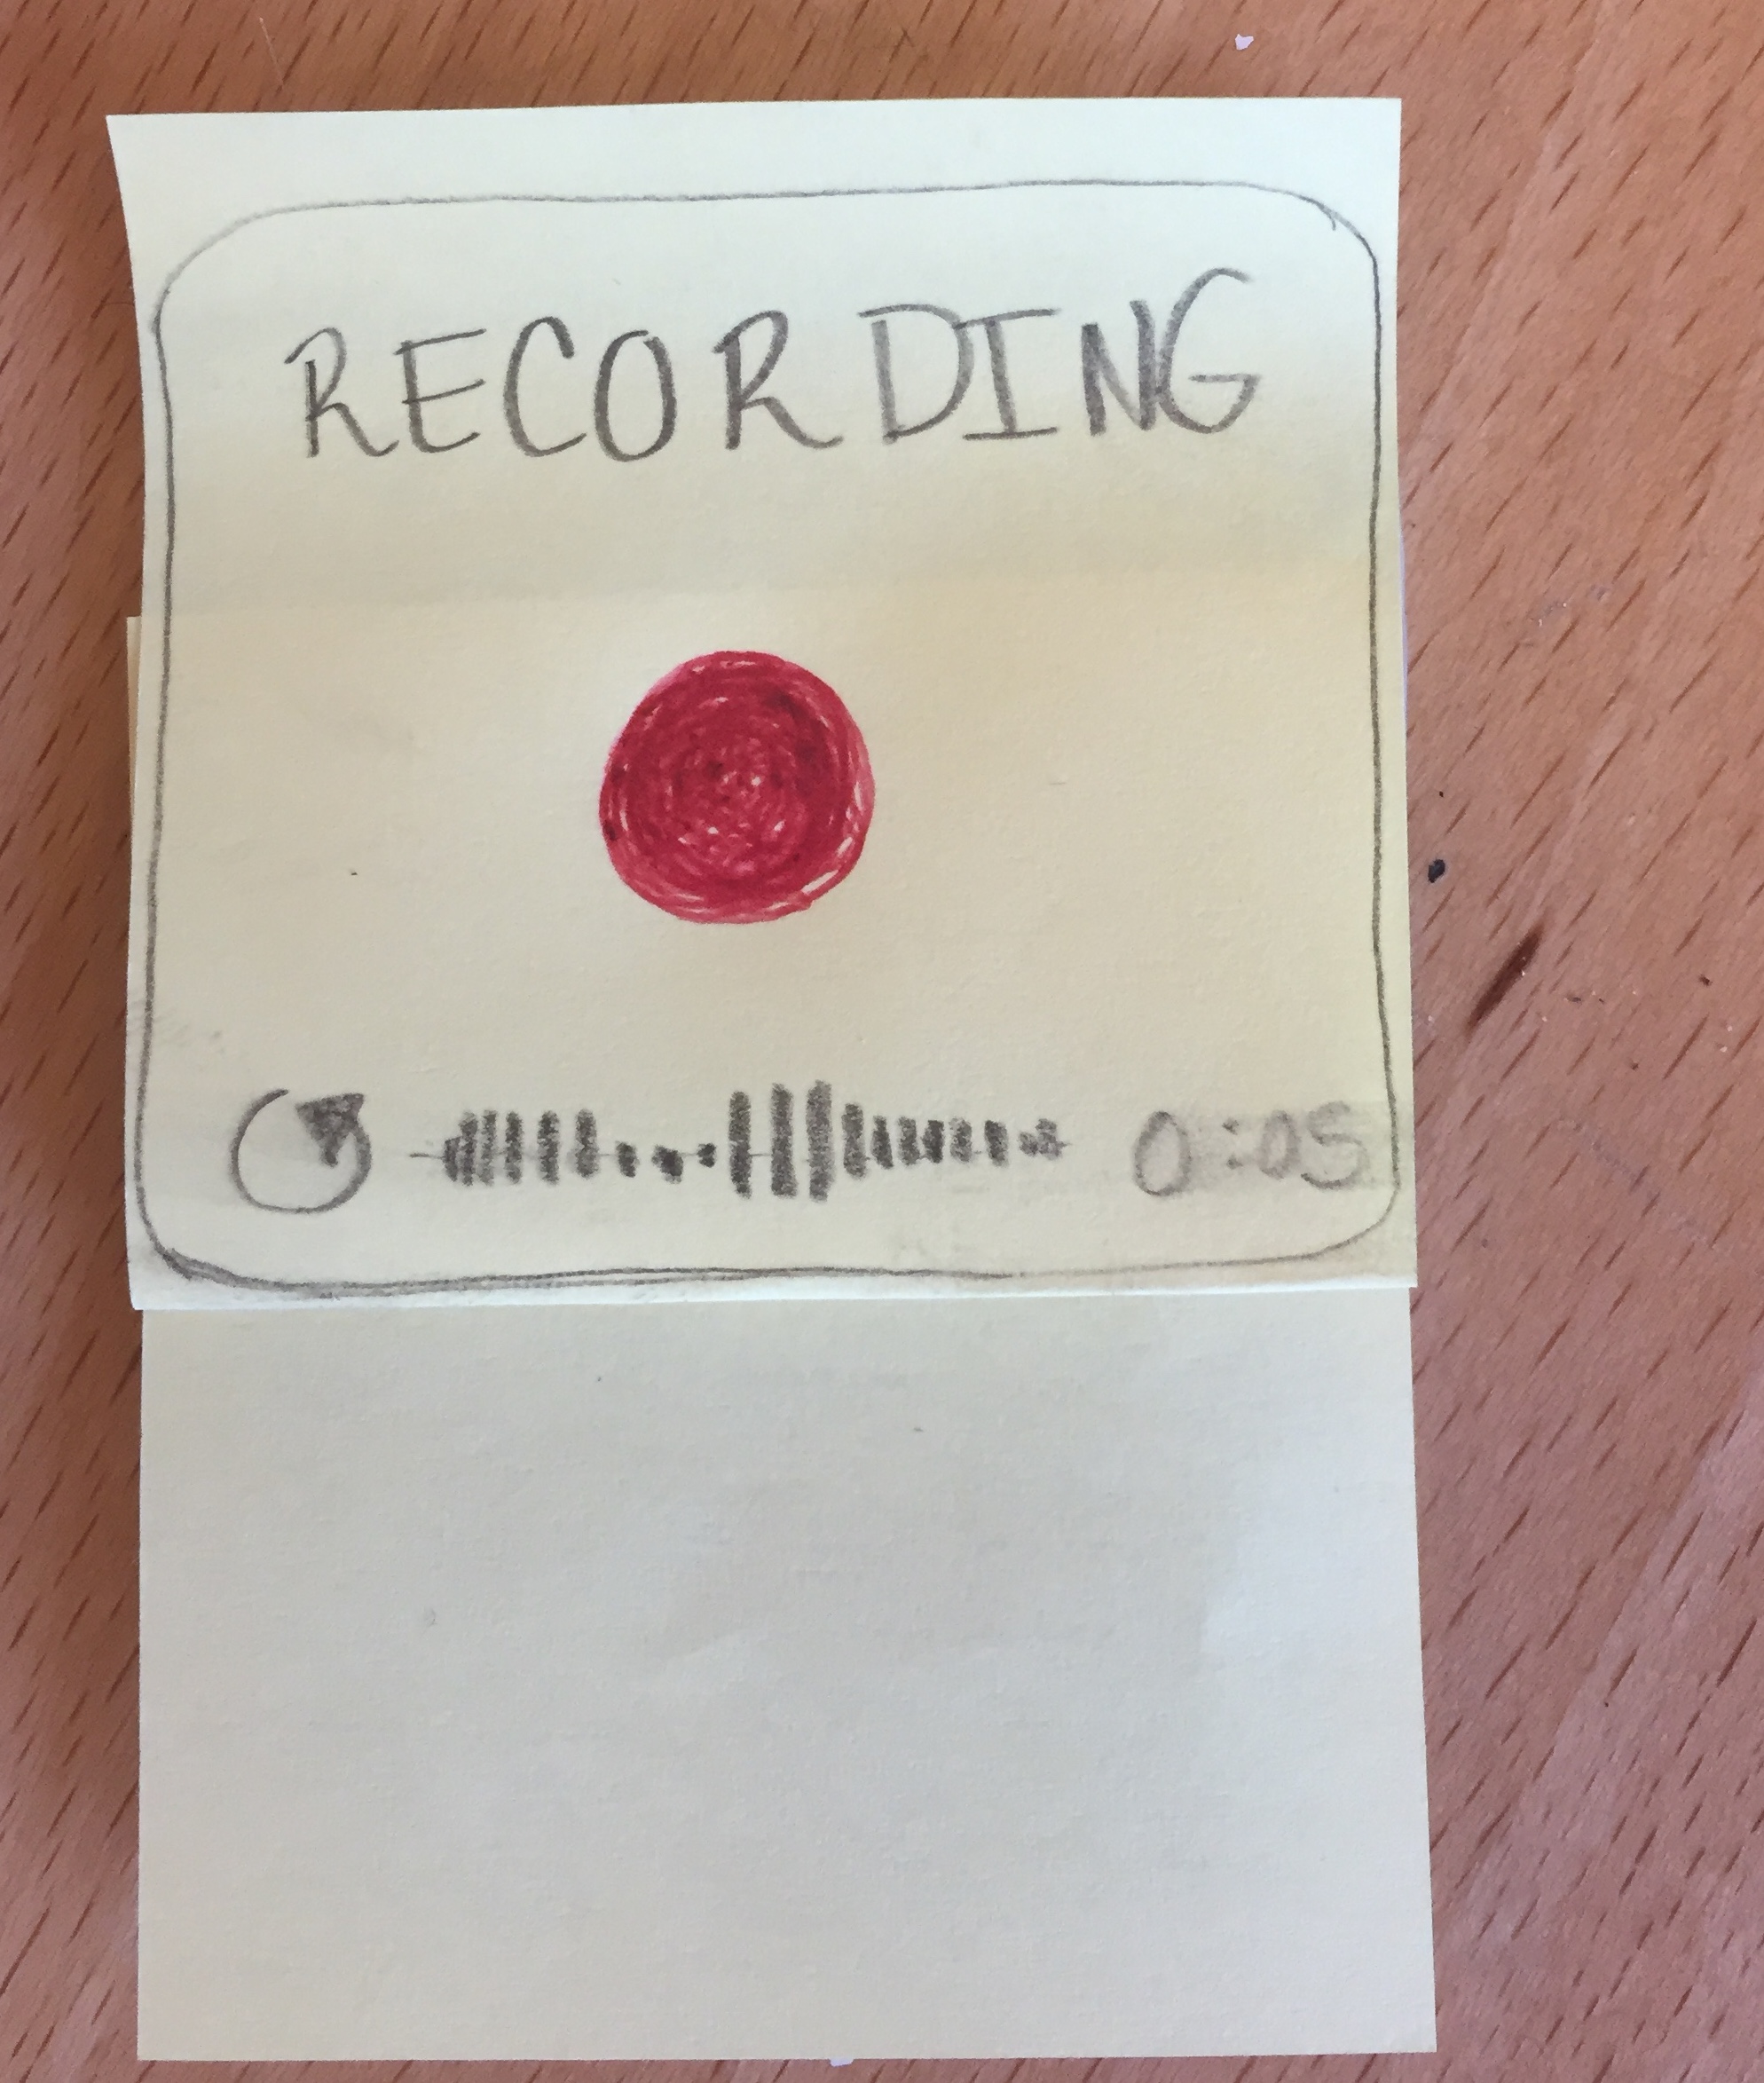 RECORDING
0:05